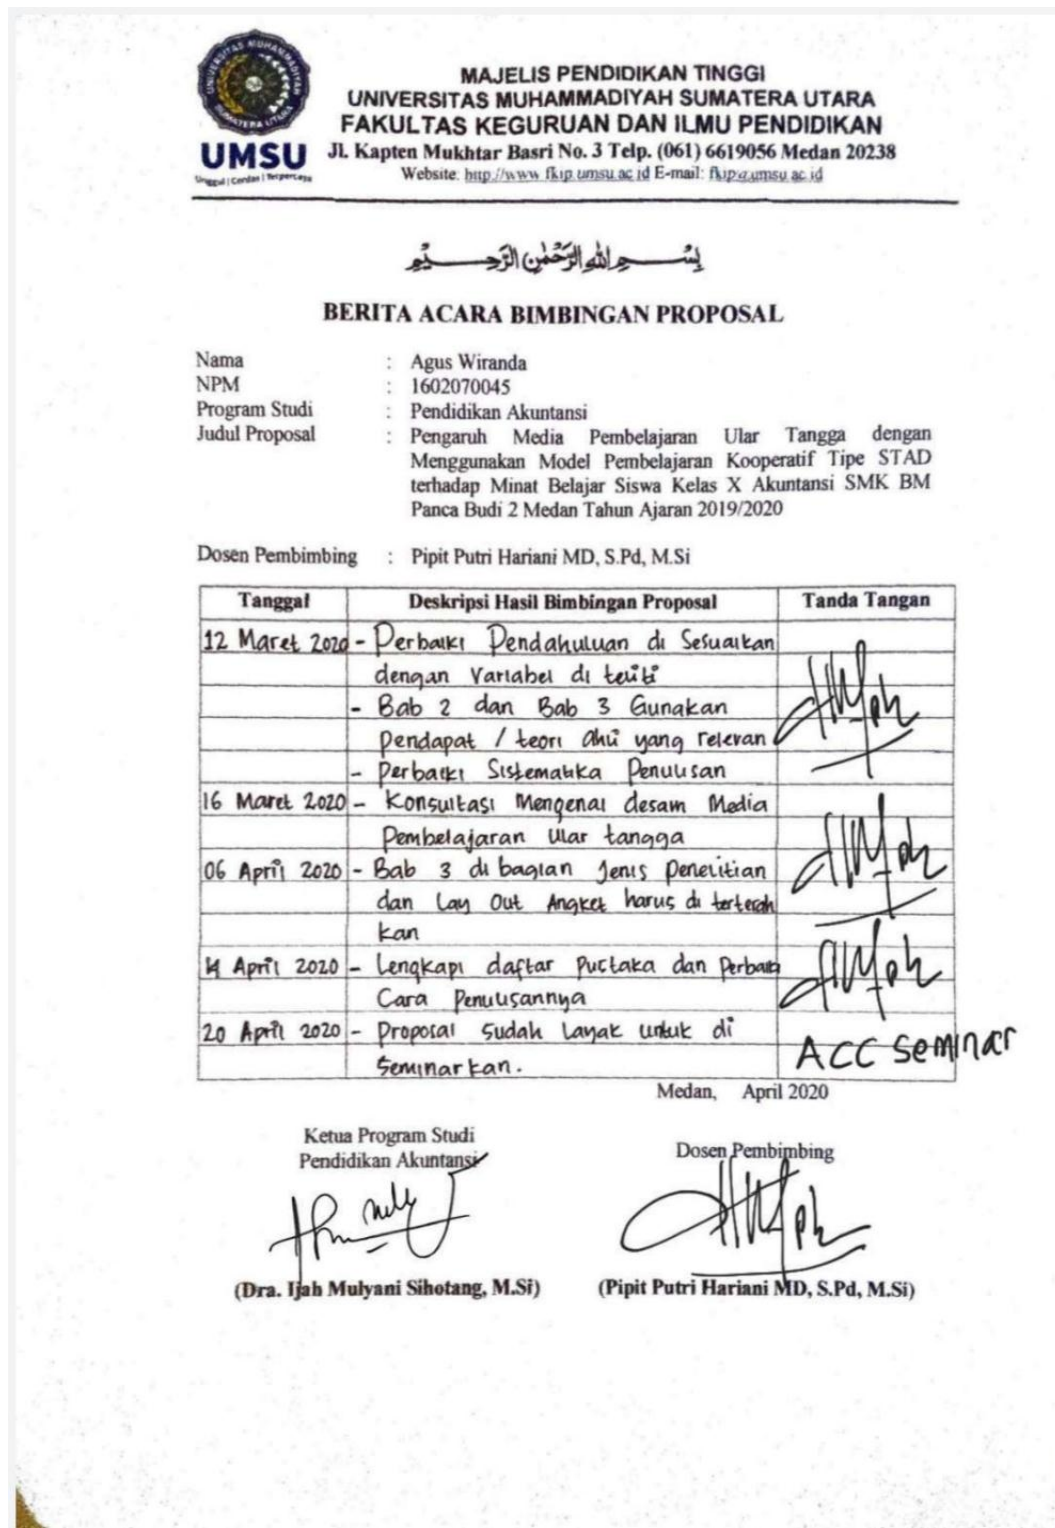 UNIVERSITAS MUHAMMADIYAH
SUMATERA UTARA
UMSU
Unggul | Cerdas | Terpercaya
MAJELIS PENDIDIKAN TINGGI
UNIVERSITAS MUHAMMADIYAH SUMATERA UTARA
FAKULTAS KEGURUAN DAN ILMU PENDIDIKAN
Jl. Kapten Mukhtar Basri No. 3 Telp. (061) 6619056 Medan 20238
Website: http://www.fkip.umsu.ac.id E-mail: fkip@umsu.ac.id
بِسْمِ اللهِ الرَّحْمٰنِ الرَّحِيْمِ
BERITA ACARA BIMBINGAN PROPOSAL
Nama : Agus Wiranda
NPM : 1602070045
Program Studi : Pendidikan Akuntansi
Judul Proposal : Pengaruh Media Pembelajaran Ular Tangga dengan
Menggunakan Model Pembelajaran Kooperatif Tipe STAD
terhadap Minat Belajar Siswa Kelas X Akuntansi SMK BM
Panca Budi 2 Medan Tahun Ajaran 2019/2020
Dosen Pembimbing : Pipit Putri Hariani MD, S.Pd, M.Si
Tanggal Deskripsi Hasil Bimbingan Proposal Tanda Tangan
12 Maret 2020 - Perbaiki Pendahuluan di Sesuaikan
dengan Variabel di teliti
- Bab 2 dan Bab 3 Gunakan
Pendapat / teori ahli yang relevan
- Perbaiki Sistematika Penulisan
16 Maret 2020 - Konsultasi Mengenai desain Media
Pembelajaran Ular tangga
06 April 2020 - Bab 3 di bagian Jenis Penelitian
dan Lay Out Angket harus di terterah
kan
14 April 2020 - Lengkapi daftar Pustaka dan Perbaiki
Cara Penulisannya
20 April 2020 - Proposal Sudah Layak untuk di
Seminarkan.
ACC Seminar
Medan, April 2020
Ketua Program Studi
Pendidikan Akuntansi
Dosen Pembimbing
(Dra. Ijah Mulyani Sihotang, M.Si) (Pipit Putri Hariani MD, S.Pd, M.Si)